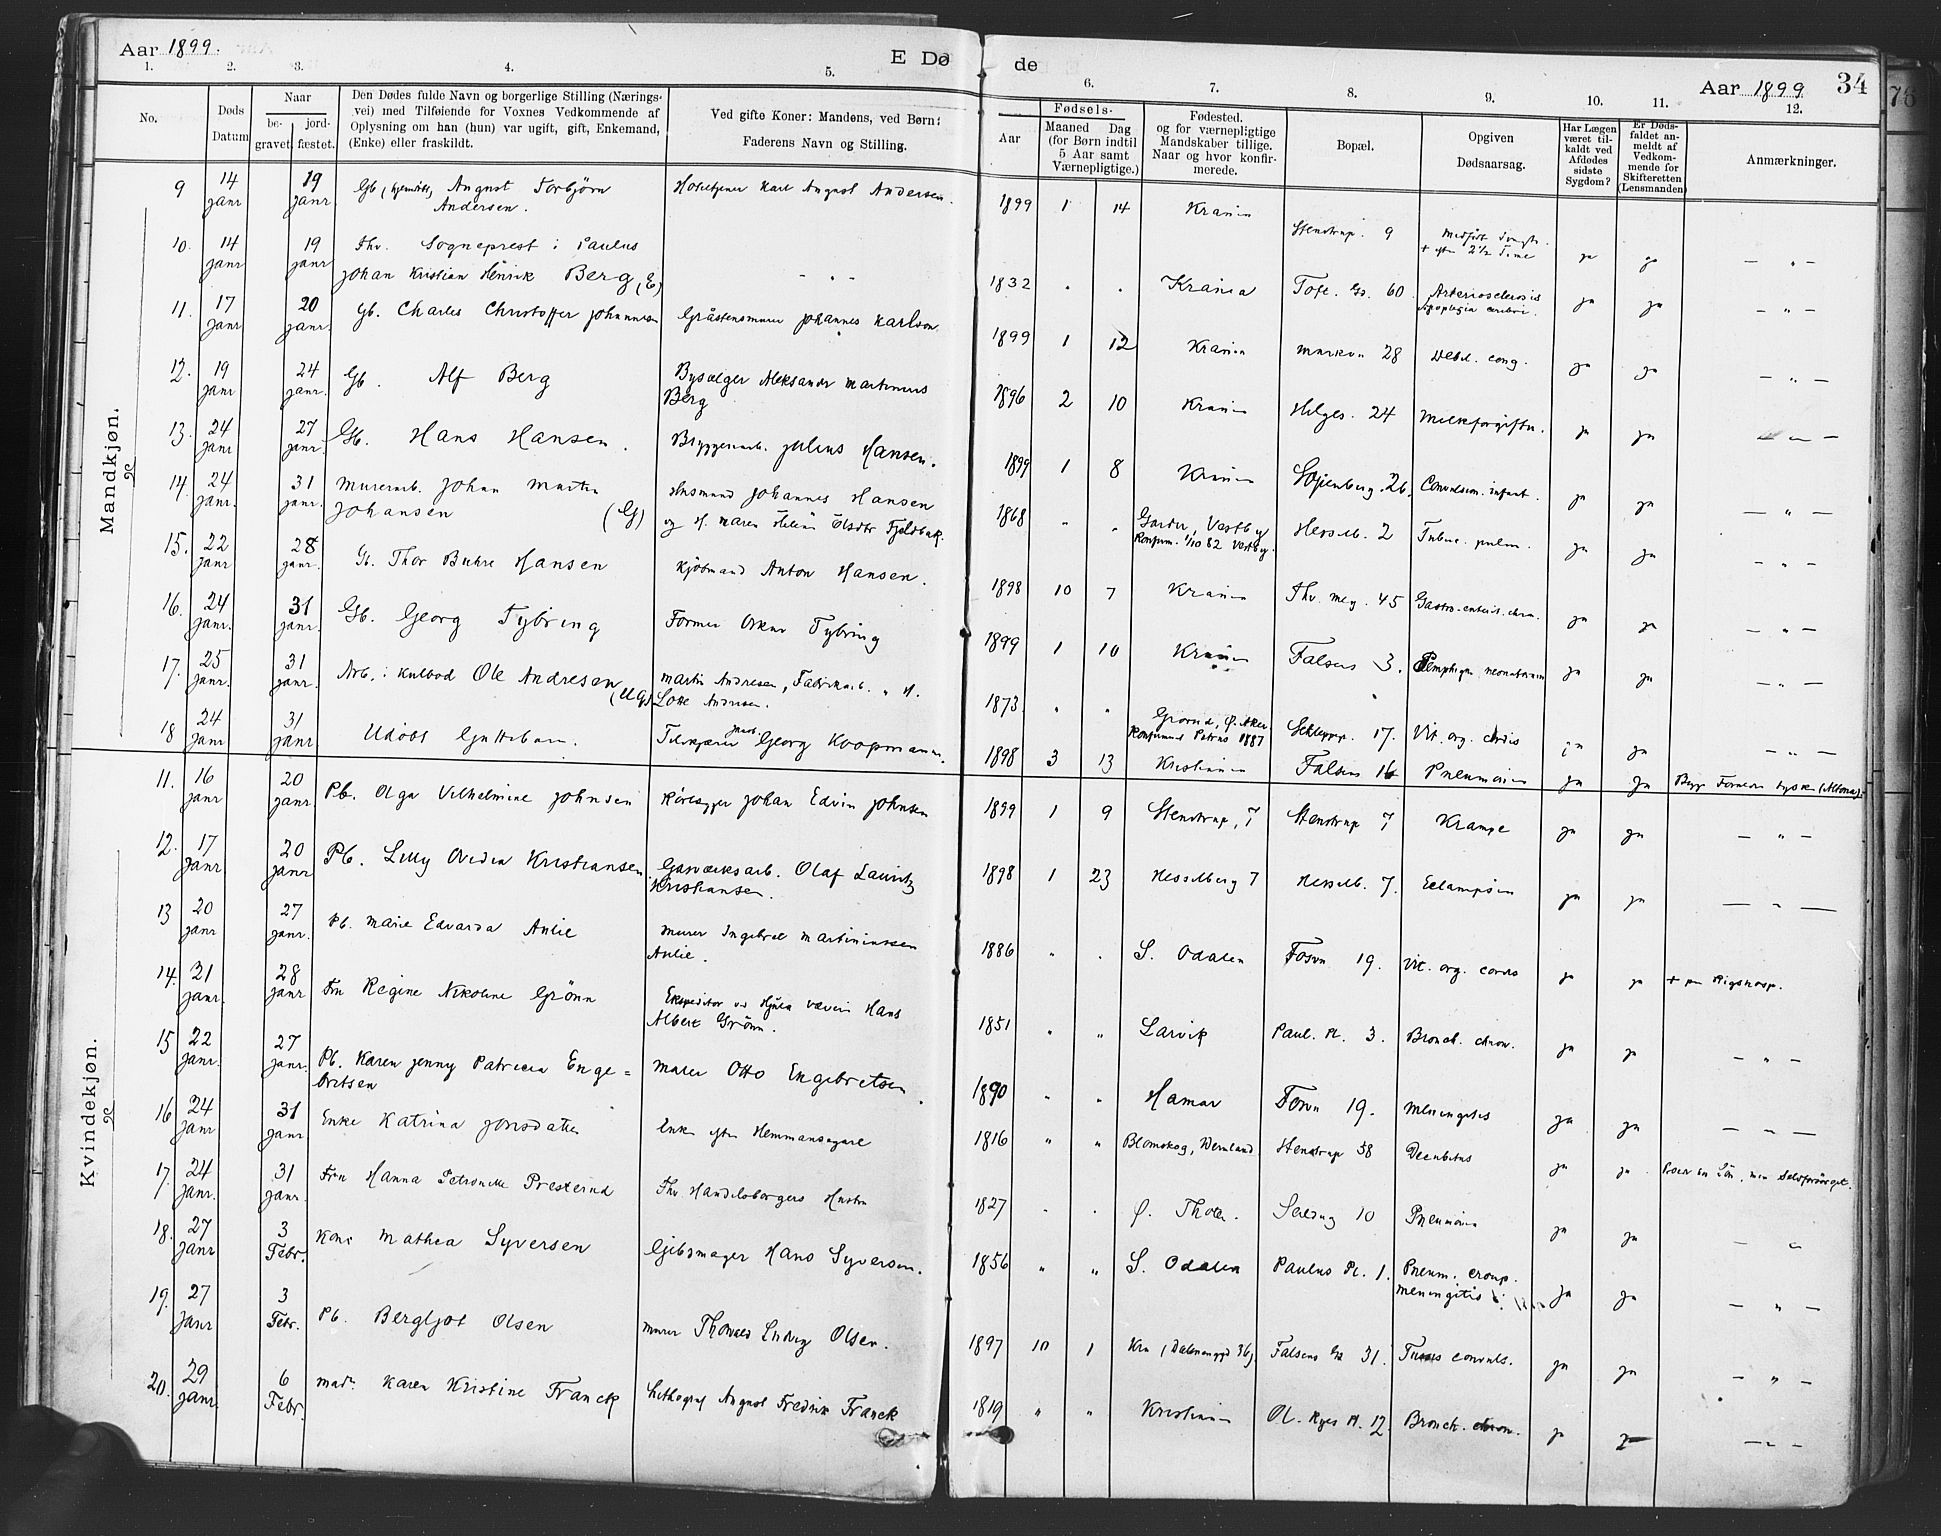 Aar 1899.
E. Døde
Aar 1899
34
1. 2. 3. 4. 5. 6. 7. 8. 9. 10. 11. 12.
No.
Døds Datum
Naar
begravet. jordfæstet.
Den Dødes fulde Navn og borgerlige Stilling (Næringsvei) med Tilføiende for Voxnes Vedkommende af Oplysning om han (hun) var ugift, gift, Enkemand, (Enke) eller fraskildt.
Ved gifte Koner: Mandens, ved Børn: Faderens Navn og Stilling.
Fødsels-
Aar
Maaned Dag
(for Børn indtil 5 Aar samt Værnepligtige.)
Fødested. og for værnepligtige Mandskaber tillige. Naar og hvor konfirmerede.
Bopæl.
Opgiven Dødsaarsag.
Har Lægen været tilkaldt ved Afdødes sidste Sygdom?
Er Dødsfaldet anmeldt af Vedkommende for Skifteretten (Lensmanden)
Anmærkninger.
Mandkjøn.
9 14 Janr 19 Janr Gb, August Torbjørn Andersen. Karl August Andersen. 1899 1 14 Krania Stenstrup. 9 + efter 2 1/2 Time ja ja — " —
10. 14 Janr 19 Janr Fhv. Sogneprest i Paulus Johan Kristian Henrik Berg (E) - " - 1832 " " Krania Toft. Gd. 60. Arteriosclerosis Apoplegia cerebri. ja ja — " —
11. 17 Janr 20 Janr. Gb. Charles Christoffer Johannesen Gråstensmurer Johannes Karlson. 1899 1 12 Krania Markvn 28 Debil. cong. ja ja — " —
12. 19 Janr 24 Janr. Gb. Alf Berg Bysælger Aleksander Martinius Berg 1896 2 10 Krania Helges. 24 Melkforgiftn. ja ja — " —
13. 24 Janr 27 Janr. Gb. Hans Hansen. Bryggeriarb. Julius Hansen. 1899 1 8 Krania 26. Convulsion. infant. ja ja — " —
14. 24 Janr. 31 Janr. Murerarb. Johan Martin Johansen (G) Husmand Johannes Hansen og H. Maren Helene Olsdtr Fjeldbak. 1868 " " Garder, Vestby Konfirm. 1/10 82 Vestby. Hesselb. 2 Tuberc. pulm. ja ja — " —
15. 22 Janr 28 Janr. Gb. Thor Buhre Hansen Kjøbmand Anton Hansen. 1898 10 7 Krania Thv. Mey. 45 Gastro-enterit. chron. ja ja — " —
16. 24 Janr. 31 Janr. Gb. Georg Tybring Former Oskar Tybring 1899 1 10 Krania Falsens 3. Pemphigus neonatorum ja ja — " —
17. 25 Janr. 31 Janr. Arb. i Kulbod Ole Andresen (UG) Martin Andresen, Fabrikarb. " H. Lotte Andresen. 1873 " " Grorud, Ø. Aker Konfirmered Petrus 1887 Schleppegr. 17. Vit. org. cordis ja ja — " —
18 24 Janr 31 Janr. Udøbt Guttebarn. Georg Koopmann. 1898 3 13 Kristiania Falsens 16 Pneumonia ja ja Begge Forældre tyske (Altona).
Kvindekjøn.
11. 16 Janr 20 Janr. Pb. Olga Vilhelmine Johnsen Kjøresvend Johan Edvin Johnsen 1899 1 9 Stenstrup, 7 Stenstrup 7 Krampe ja ja — " —
12. 17 Janr 20 Janr Pb. Lilly Ovidia Kristiansen Gasværksarb. Olaf Lauritz Kristiansen. 1898 1 23 Hesselberg 7 Hesselb. 7. Eclampsia ja ja — " —
13 20 Janr. 27 Janr. Pb. Marie Edvarda Aulie Murer Ingebret Martiniussen Aulie. 1886 " " S. Odalen Fossvn 19. Vit. org. cordis ja ja + paa Rigshosp.
14. 21 Janr. 28 Janr Fru Regine Nikoline Grønn Ekspeditør ved Hjula væveri Hans Albert Grønn. 1851 " " Larvik Paul. Pl. 3. Bronch. chron. ja ja — " —
15 22 Janr. 27 Janr. Pb. Karen Jenny Patricia Engebretsen Maler Otto Engebretsen. 1890 " " Hamar Fossvn 19. Meningitis ja ja — " —
16 24 Janr 31 Janr Enke Katrina Jonsdatter Enke efter Hemmansegare 1816 " " Blomskog, Wermland Stenstrup 58 Decubitus ja ja
17. 24 Janr. 31 Janr. Fru Hanna Petronelle Presterud Fhv. Handelsborgers Hustru 1827 " " Ø. Thoten. Seldug 10 Pneumonia ja ja — "
18. 27 Janr 3 Febr. Kone Mathea Syversen Gjibsmager Hans Syversen. 1856 " " S. Odalen Paulus Pl. 1. Pneum. croup. Meningitis ja ja — " —
19. 27 Janr 3 Febr. Pb. Bergljot Olsen Murer Thorvald Ludvig Olsen. 1897 10 1 Kra (Dalenenggd 36). Falsens Gd 31. Tussis convuls. ja ja — " —
20. 29 Janr. 6 Febr. Madm. Karen Kristine Franck Lithograf August Fredrik Franck 1819 " " Kristiania Ol. Ryes Pl. 12. Bronch. chron. ja ja — " —